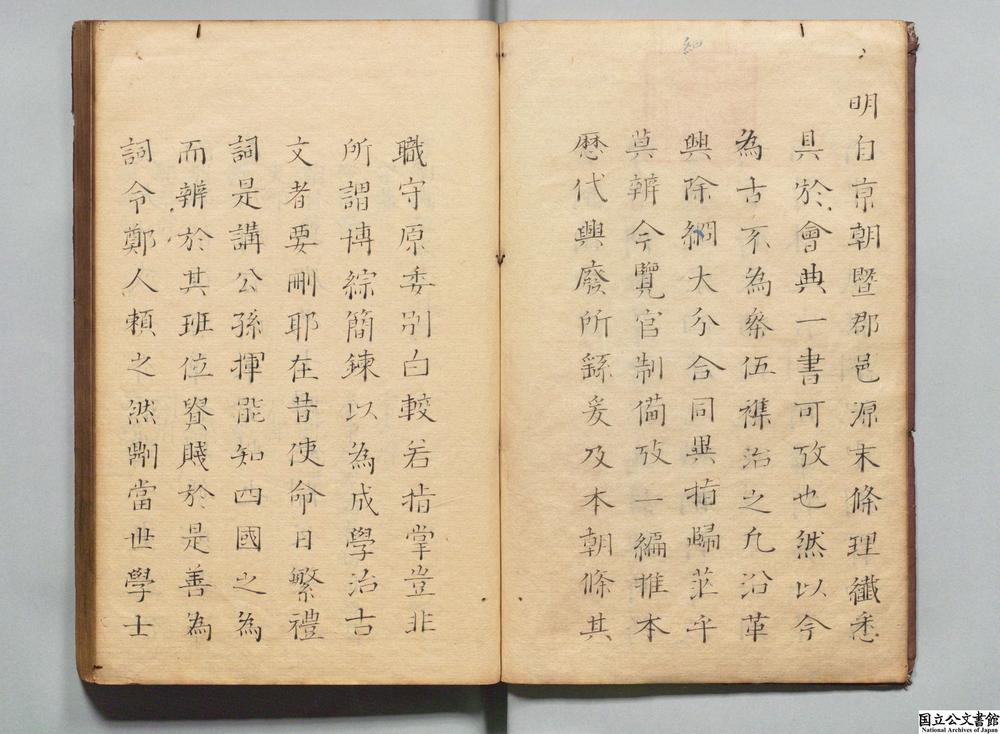 明自京朝暨郡邑源末條理纖悉
具於會典一書可攷也然以今
為古不為參伍襍治之凡沿革
興除綱大分合同異指歸茫乎
莫辨今覽官制備攷一編推本
歷代興廢所繇爰及本朝條其
職守原委別白較若指掌豈非
所謂博綜簡鍊以為成學治古
文者要刪耶在昔使命日繁禮
詞是講公孫揮能知四國之為
而辨於其班位貴賤於是善為
詞令鄭人賴之然則當世學士
国立公文書館
National Archives of Japan